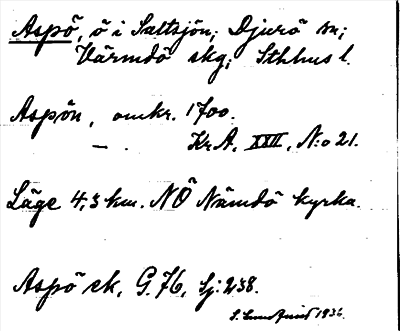 Aspö, ö i Saltsjön; Djurö sn;
Värmdö skg; Sthlms l.
Aspön, omkr. 1700.
— . Kr.A. XXII, N:o 21.
Läge 4,3 km. NÖ Nämdö kyrka.
Aspö ek, G. 76, Sj: 238.
1936.